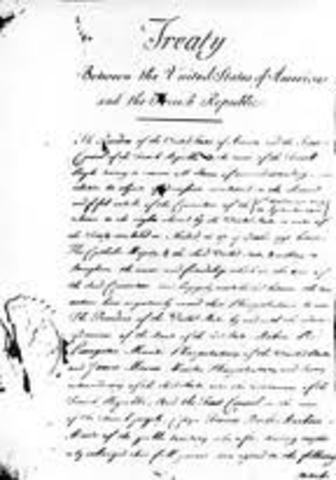 Treaty
Between the United States of America
and the French Republic
The President of the United States of America and the First
Consul of the French Republic in the name of the French
People desiring to remove all Source of misunderstanding
relative to objects of discussion mentioned in the Second
and fifth articles of the Convention of the
relative to the rights claimed by the United States in virtue of
the Treaty concluded at Madrid the of October between
His Catholic Majesty & the Said United States, & willing to
Strengthen the union and friendship which at the time of
the Said Convention was happily between the two
nations have respectively named their Plenipotentiaries to wit
The President of the United States by and with the advice
and consent of the Senate of the Said States Robert R.
Livingston Minister Plenipotentiary of the United States
and James Monroe Minister Plenipotentiary and Envoy
extraordinary of the Said States near the Government of the
French Republic And the First Consul in the name
of the French people
Minister of the public treasury who after having respec
tively exchanged their full powers have agreed to the following